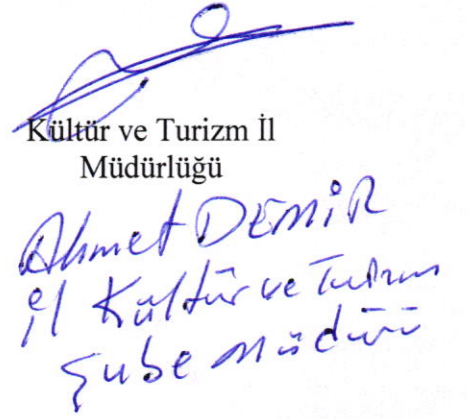 Kültür ve Turizm İl
Müdürlüğü
Ahmet DEMİR
İl Kültür ve Turizm
Şube Müdürü